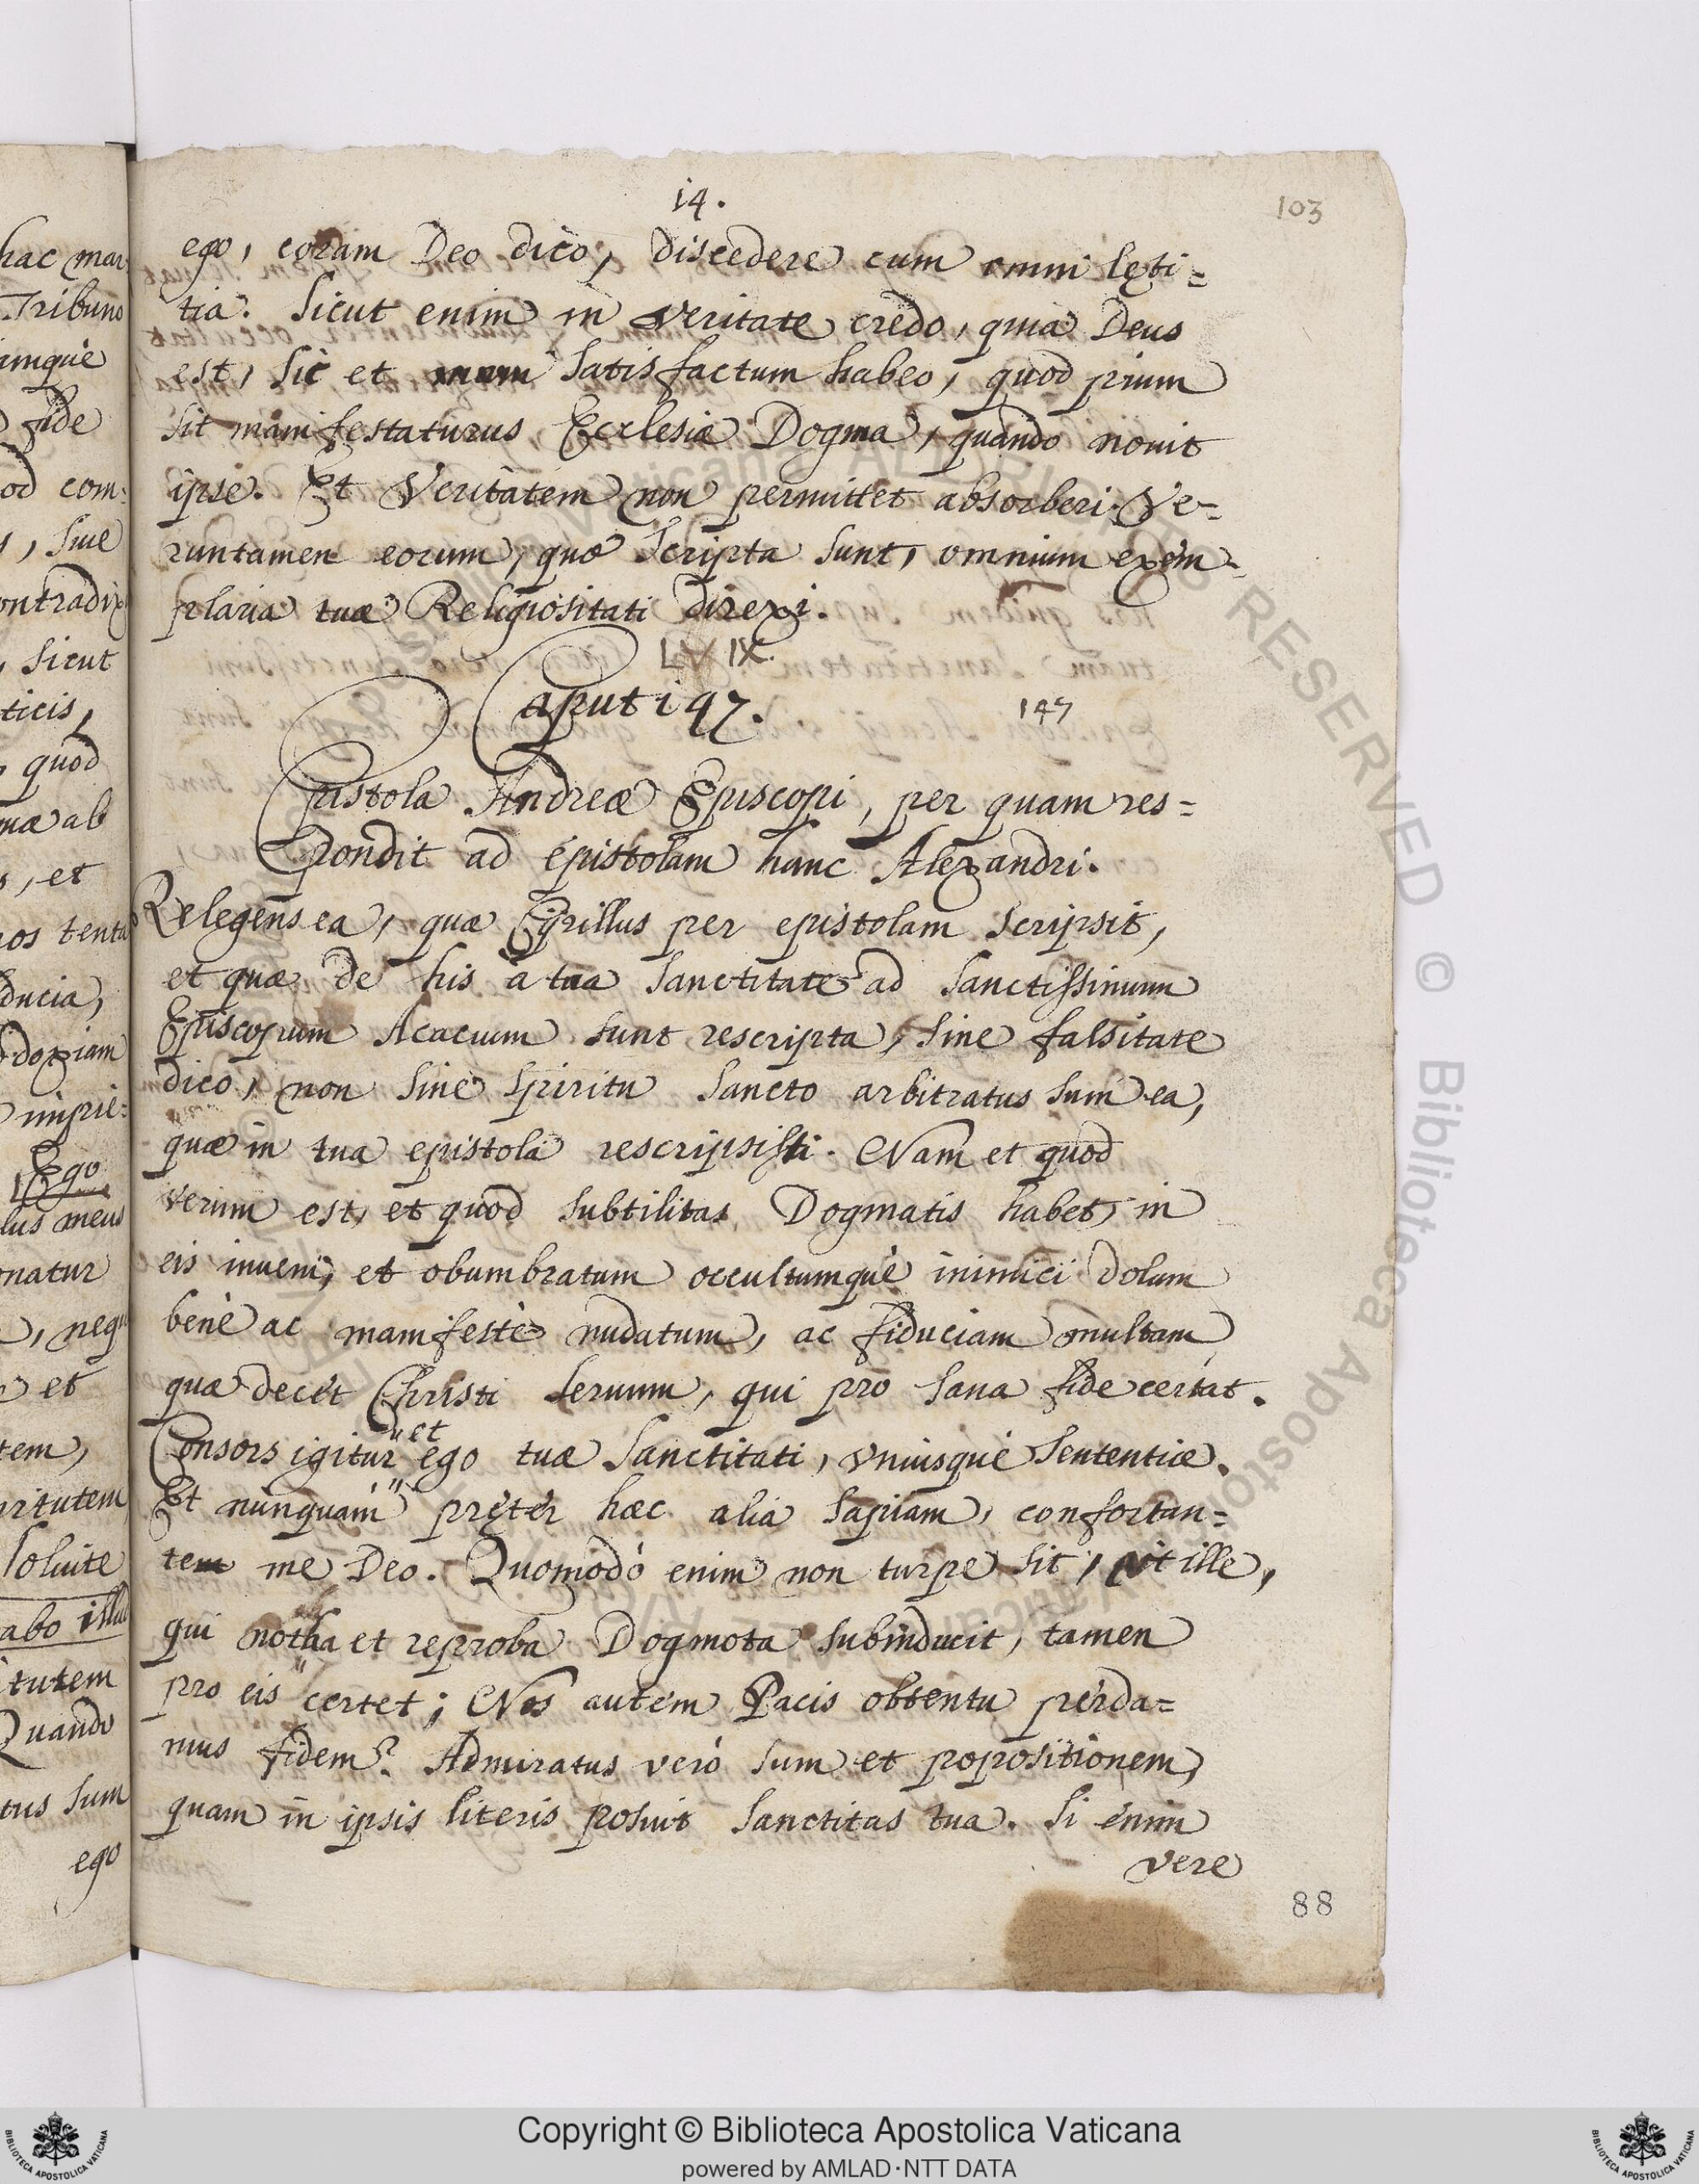 hac mar
Tribuno
umquè
fide
od com:
s, siue
ontradix
, sicut
ticis,
, quod
mæ ab
s, et
nos tenta
ducia,
doxiam
impie:
Ego
lus meus
onatur
, nequ
et
tem,
irtutem
soluite
abo illud
tutem
Quando
tus sum
ego
14.
103
ego, coram Deo dico, discedere cum omni lęti=
tia. Sicut enim in veritate credo, quia Deus
est, sic et satisfactum habeo, quod pium
sit manifestaturus Ecclesiæ Dogma, quando nouit
ipse. Et Veritatem non permittet absorberi. Ve=
runtamen eorum, quæ scripta sunt, omnium exem=
plaria tuæ Religiositati direxi.
LXIX.
Caput 147.
147
Epistola Andreæ Episcopi, per quam res=
pondit ad epistolam hanc Alexandri.
Relegens ea, quæ Cyrillus per epistolam scripsit,
et quæ de his à tua Sanctitate ad Sanctissimum
Episcopum Acacium sunt rescripta, sine falsitate
dico, non sine Spiritu Sancto arbitratus sum ea,
quæ in tua epistola rescripsisti. Nam et quod
verum est, et quod subtilitas Dogmatis habet, in
eis inueni, et obumbratum occultumquè inimici dolum
benè ac manifestè nudatum, ac fiduciam multam,
quæ decet Christi seruum, qui pro sana fide certat.
Consors igitur et ego tuæ Sanctitati, vniusquè sententiæ.
Et nunquam pręter hæc alia sapiam, confortan=
tem me Deo. Quomodò enim non turpe sit, vt ille,
qui notha et reproba Dogmota subinducit, tamen
pro eis certet; Nos autem Pacis obtentu perda=
mus fidem? Admiratus verò sum et popositionem,
quam in ipsis literis posuit Sanctitas tua. Si enim
vere
88
Copyright © Biblioteca Apostolica Vaticana
powered by AMLAD·NTT DATA